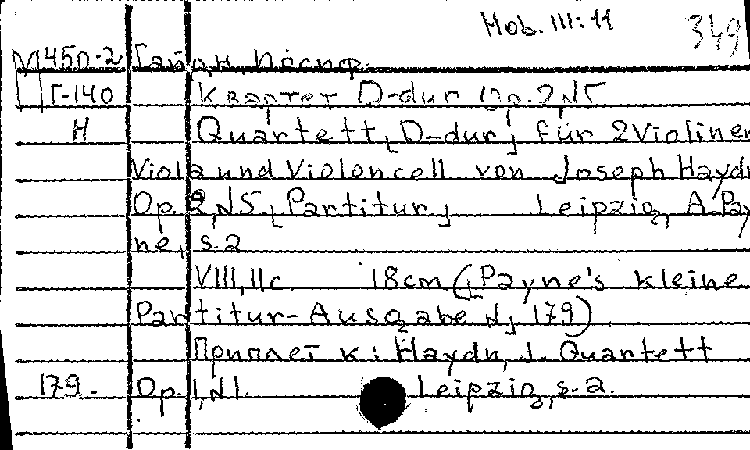 Mob. III: 11
349
М450-2 Гайдн, Иосиф.
Г-140 Квартет D-dur Op. 2, N5
H Quartett [D-dur] für 2 Violinen
Viola und Violoncell von Joseph Haydn
Op. 2, N5. [Partitur] Leipzig, A. Pay
ne, s. a
VIII, 11 c. 18 cm ([Payne's kleine
Partitur-Ausgabe N] 179)
Приплет к: Haydn, J. Quartett
179. Op. 1, N1. Leipzig, s. a.